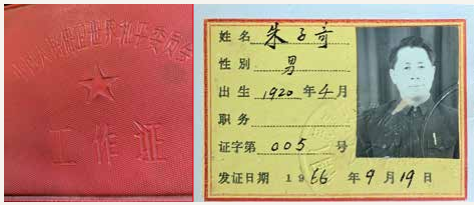 中国人民保卫世界和平委员会
工作证
姓名 朱子奇
性别 男
出生 1920 年 4 月
职务
证字第 005 号
发证日期 1966 年 9 月 19 日